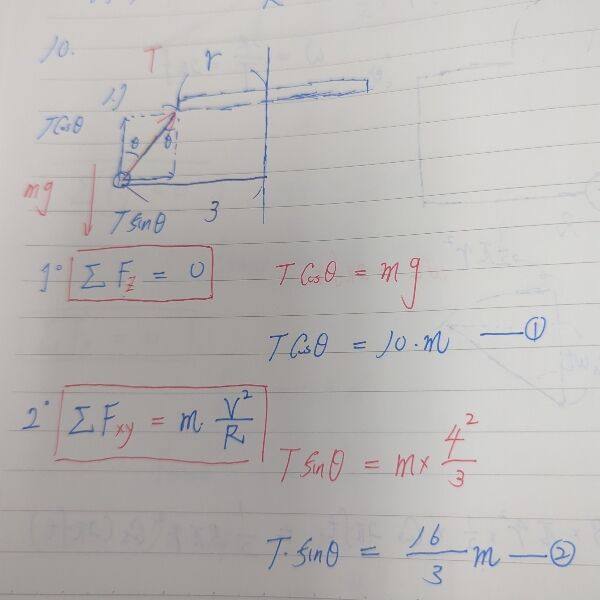 10.
T r
1.7
Tcosθ
θ θ
mg
Tsinθ 3
1° ΣFz = 0 Tcosθ = mg
Tcosθ = 10·m —①
2° ΣFxy = m·V²/R
Tsinθ = m×4²/3
T·sinθ = 16/3 m —②